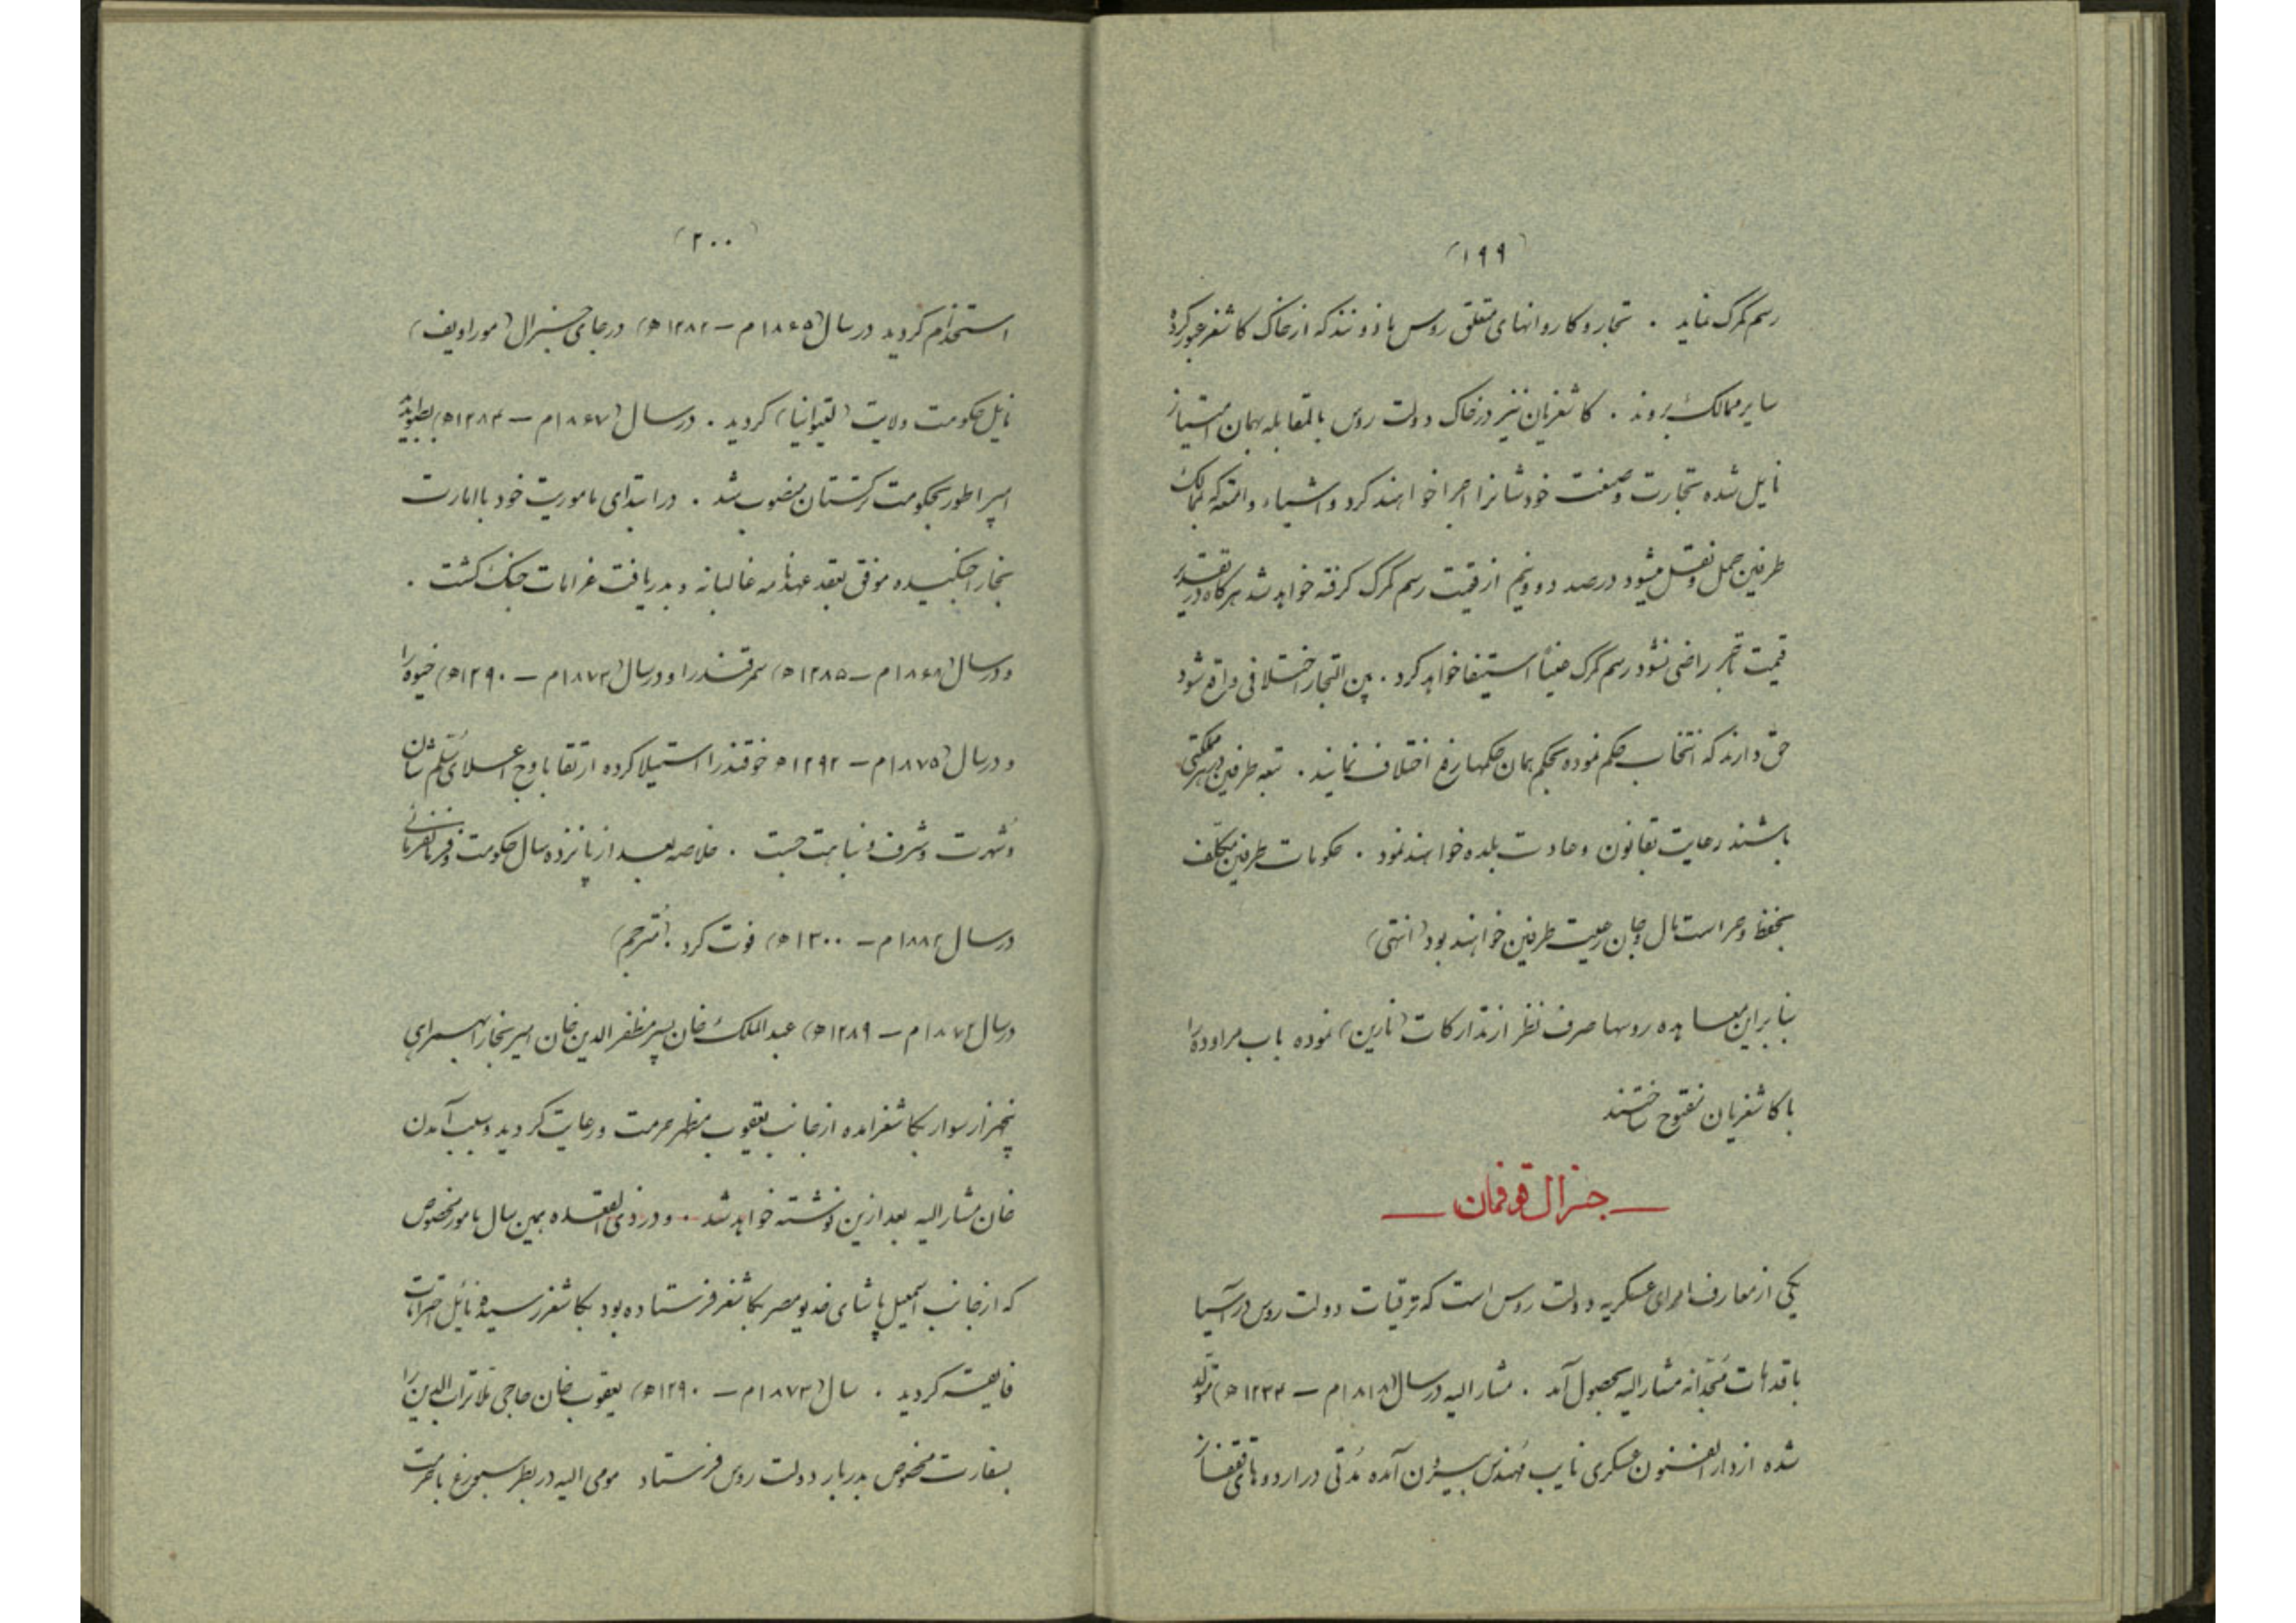 (۱۹۹)
رسم گمرک نماید . تجار و کاروانهای متعلق روس ماذونند که از خاک کاشغر عبور کرده
سایر ممالک بروند . کاشغریان نیز در خاک دولت روس بالمقابله بهمان امتیاز
نایل شده تجارت و صنعت خودشانرا اجرا خواهند کرد و اشیاء و امتعه که بممالک
طرفین حمل و نقل میشود در صد دو و نیم از قیمت رسم گمرک گرفته خواهد شد هرگاه در تقدیر
قیمت تاجر راضی نشود رسم گمرک عیناً استیفا خواهد کرد . بین التجار اختلافی واقع شود
حق دارند که انتخاب حکم نموده بحکم همان حکمها رفع اختلاف نمایند . تبعه طرفین در هر مملکتی
باشند رعایت بقانون و عادت بلده خواهند نمود . حکومات طرفین مکلف
بحفظ و حراست مال و جان رعیت طرفین خواهند بود (انتهی)
بنابراین معاهده روسها صرف نظر از تدارکات (نارین) نموده باب مراوده را
با کاشغریان مفتوح ساختند
— جنرال قوفمان —
یکی از معارف امرای عسکریه دولت روس است که ترقیات دولت روس در آسیا
باقدامات مجدانه مشارالیه بحصول آمد . مشارالیه در سال (۱۸۱۸م – ۱۲۳۴ه) متولد
شده از دارالفنون عسکری نایب مهندس بیرون آمده مُدتی در اردوهای قفقاز
(۲۰۰)
استخدام گردید در سال (۱۸۶۵م – ۱۲۸۲ه) در جای جنرال (موراویف)
نایل حکومت ولایت (لتوانیا) گردید . در سال (۱۸۶۷م – ۱۲۸۴ه)
امپراطور بحکومت ترکستان منصوب شد . در ابتدای ماموریت خود با امارت
بخارا جنگیده موفق بعقد عهدنامه غالبانه و بدریافت غرامات جنگ گشت .
و در سال (۱۸۶۸م – ۱۲۸۵ه) سمرقند را و در سال (۱۸۷۳م – ۱۲۹۰ه) خیوه را
و در سال (۱۸۷۵م – ۱۲۹۲ه خوقند را استیلا کرده ارتقا باوج اعلای سُلّم شان
و شهرت و شرف و نباهت جست . خلاصه بعد از پانزده سال حکومت و فرمانفرمائی
در سال (۱۸۸۲م – ۱۳۰۰ه) فوت کرد . (مُترجم)
در سال (۱۸۷۲م – ۱۲۸۹ه) عبدالملک خان پسر مظفرالدین خان امیر بخارا بهمراهی
پنجهزار سوار بکاشغر امده از جانب یعقوب مظهر حرمت و رعایت گردید و سبب آمدن
خان مشارالیه بعد ازین نوشته خواهد شد . و در ذی القعده همین سال مامور مخصوص
که از جانب اسمعیل پاشای خدیو مصر بکاشغر فرستاده بود بکاشغر رسیده نائل احترامات
فایقه گردید . سال (۱۸۷۳م – ۱۲۹۰ه) یعقوب خان حاجی ملا تراب الدین را
بسفارت مخصوص بدربار دولت روس فرستاد مومی الیه در پطرسبورغ باحرمت